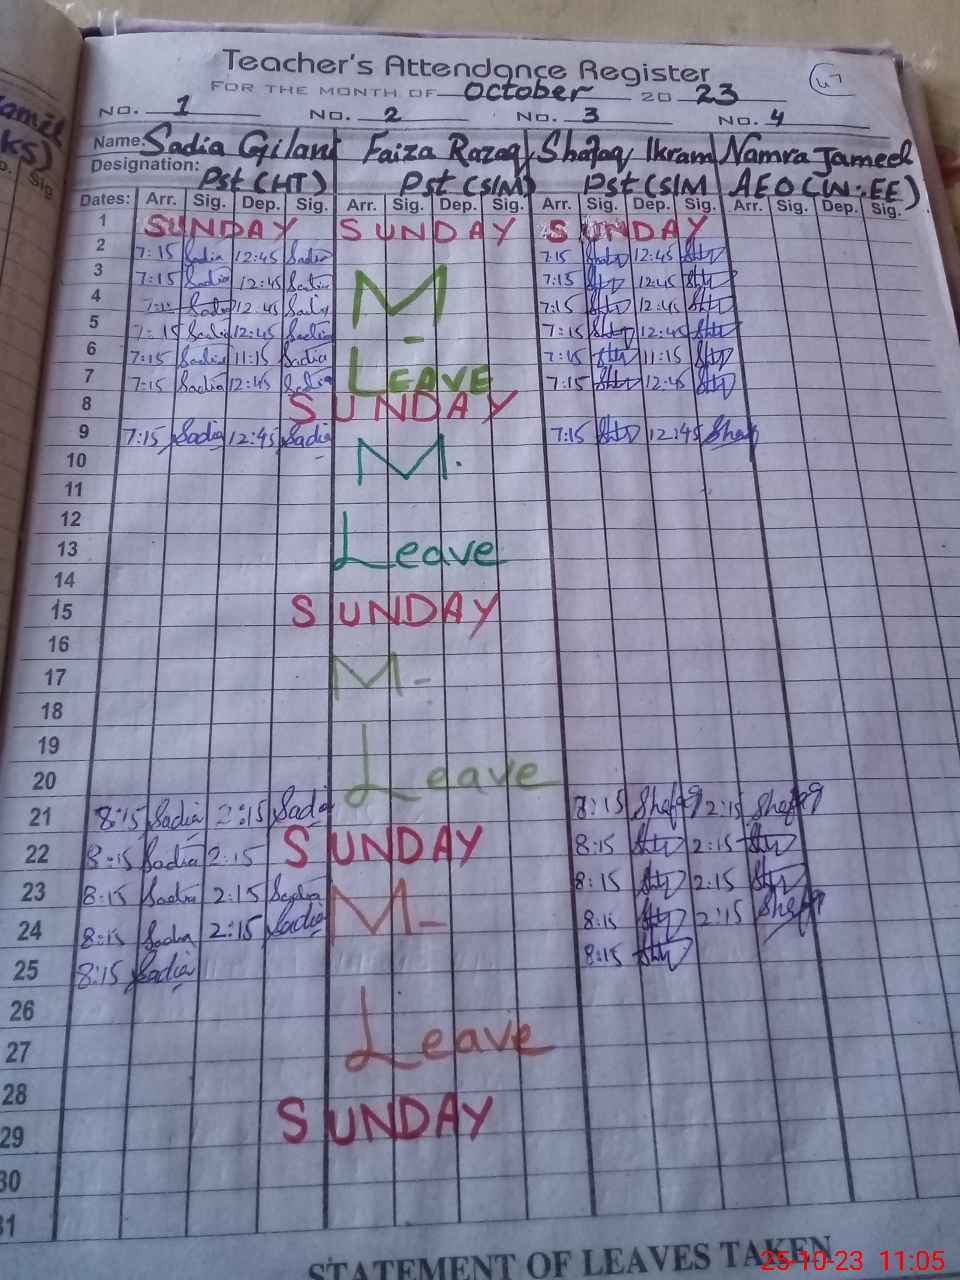 Teacher's Attendance Register
FOR THE MONTH OF October 20 23
NO. 1 NO. 2 NO. 3 NO. 4
Name: Sadia Gilani Faiza Razaq Shafaq Ikram Namra Jameel
Designation: Pst (HT) Pst (SIM) Pst (SIM AEO (W.EE)
Dates: Arr. Sig. Dep. Sig. Arr. Sig. Dep. Sig. Arr. Sig. Dep. Sig. Arr. Sig. Dep. Sig.
1 SUNDAY SUNDAY SUNDAY
2 7:15 Sadia 12:45 Sadia 7:15 12:45
3 7:15 Sadia 12:45 Sadia M 7:15 12:45
4 Sadia 12:45 Sadia 7:15 12:45
5 7:15 Sadia 12:45 Sadia - 7:15 12:45
6 7:15 Sadia 11:15 Sadia 7:15 11:15
7 7:15 Sadia 12:45 Sadia LEAVE 7:15 12:45
8 SUNDAY
9 7:15 Sadia 12:45 Sadia 7:15 12:45 Shaf
10 M.
11
12
13 Leave
14
15 SUNDAY
16
17 M-
18
19
20 Leave
21 8:15 Sadia 2:15 Sadia 8:15 Shafaq 2:15 Shafaq
22 8:15 Sadia 2:15 SUNDAY 8:15 2:15
23 8:15 Sadia 2:15 Sadia 8:15 2:15
24 8:15 Sadia 2:15 Sadia M- 8:15 2:15 Shafaq
25 8:15 Sadia 8:15
26
27 Leave
28
29 SUNDAY
30
31
STATEMENT OF LEAVES TAKEN
25-10-23 11:05